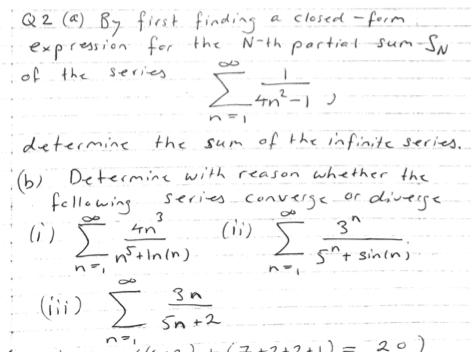 Q2 (a) By first finding a closed-form
expression for the N-th partial sum S_N
of the series
∑_{n=1}^{∞} 1/(4n²-1) ,
determine the sum of the infinite series.
(b) Determine with reason whether the
following series converge or diverge
(i) ∑_{n=1}^{∞} 4n³/(n⁵+ln(n)) (ii) ∑_{n=1}^{∞} 3ⁿ/(5ⁿ+sin(n))
(iii) ∑_{n=1}^{∞} 3n/(5n+2)
+(7+2+2+1) = 20)